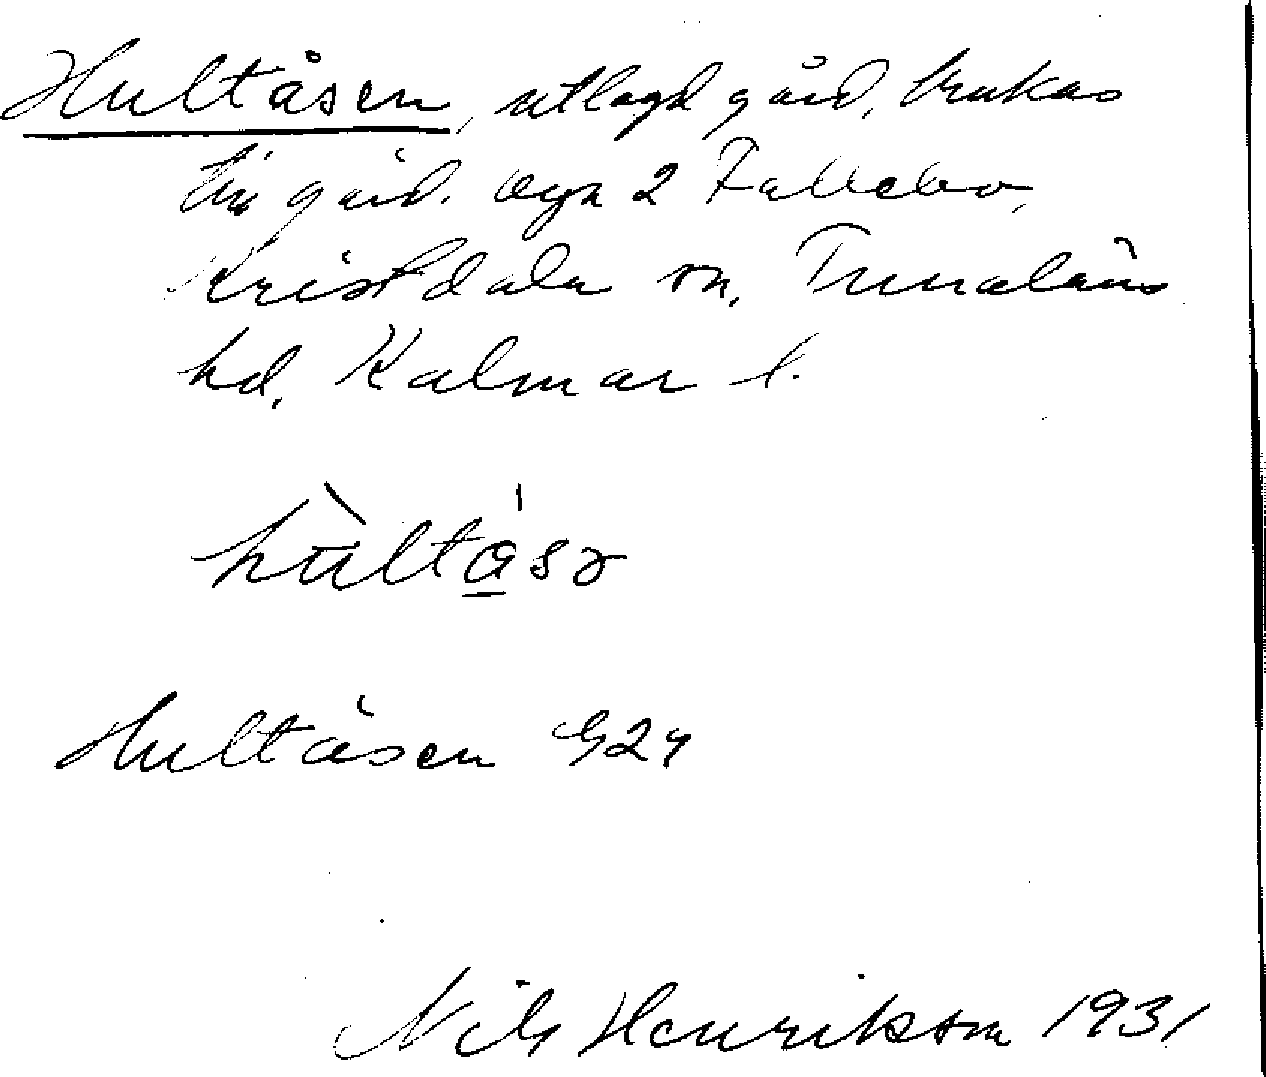 Hultåsen, utlagd gård, brukas
till gård. Öga 2 Fallebo,
Kristdala sn, Tunaläns
hd, Kalmar l.
hùltå̠sə
Hultåsen G24
Nils Henrikson 1931